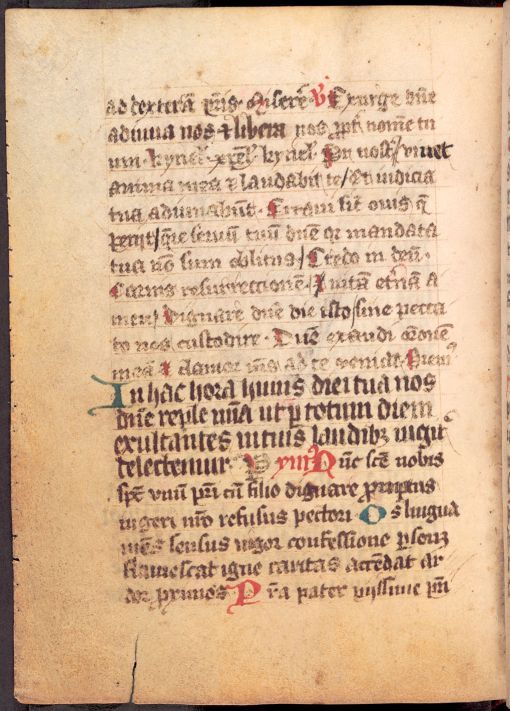 ad dexterā pris. Miserē. V Exurge dne
adiuva nos et libera nos ꝓpt nomē tu
um. kyriel. xpel. kyriel. Pr nost / vivet
anima mea et laudabit te / Et iudicia
tua adiuvabūt. Erravi sic ovis q̄
periit / qre servū tuū dne qr mandata
tua nō sum oblitus / Credo in deū.
Carnis resurrectionē. In vitā eternā a
men / Dignare dne die isto / sine pecca
to nos custodire. Dne exaudi orōnē
meā et clamor ms ad te veniat. Oremꝰ
In hac hora huius diei tua nos
dne reple mīa ut ꝑ totum diem
exultantes in tuis laudibꝫ
delectemur P ymꝰ Nūc scē nobis
spc unū pri cū filio dignare ꝓmptus
ingeri nro refusus pectori Os lingua
mēs sensus vigor confessione ꝑsonꝫ
flamescat igne caritas accēdat ar
dor proximos P rā pater piissime pri